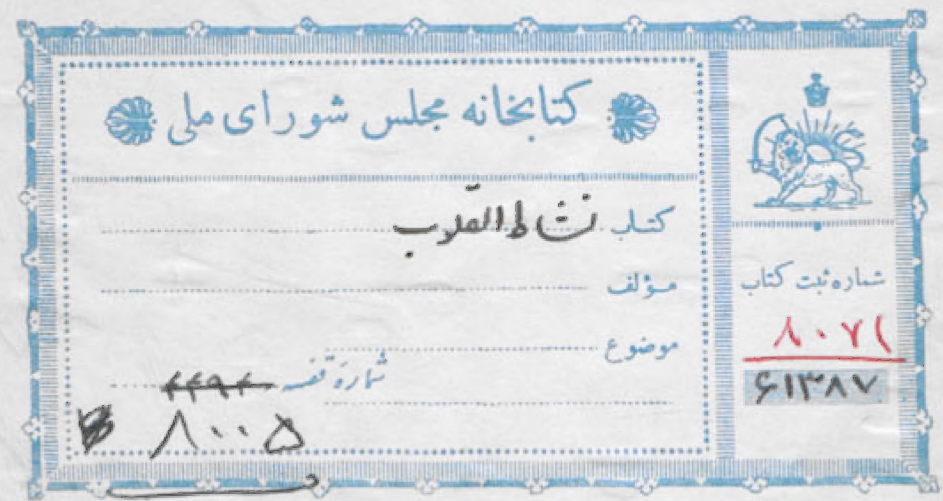 کتابخانه مجلس شورای ملی
کتاب نشاط القلوب
مؤلف
موضوع
شمارهٔ قفسه
۸۰۰۵
شماره ثبت کتاب
۸۰۷۱
۶۱۳۸۷